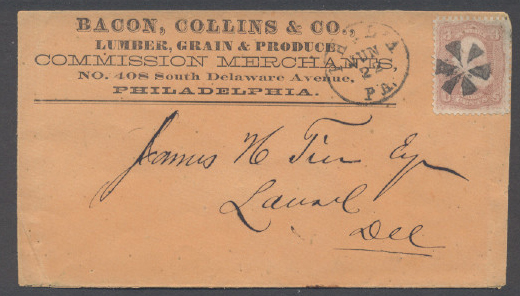 BACON, COLLINS & CO.
LUMBER, GRAIN & PRODUCE
COMMISSION MERCHANTS,
NO. 408 South Delaware Avenue,
PHILADELPHIA.
PHILA
JUN
22
PA.
3 3
James N Esq
Laurel
Del